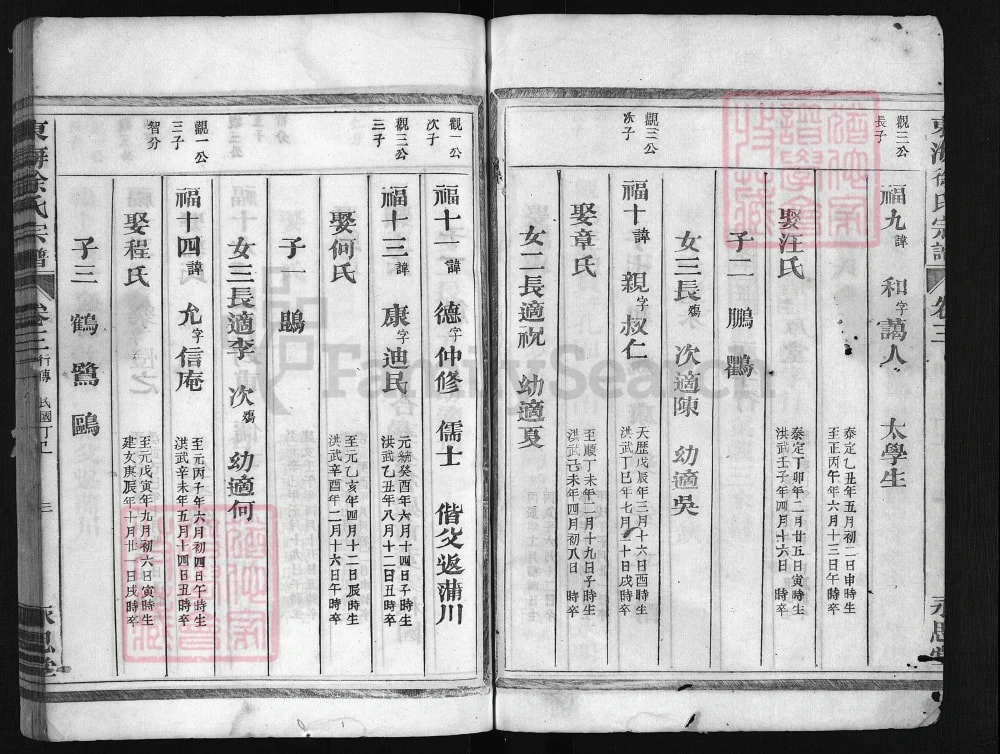 東海徐氏宗譜
卷三
永思堂
觀三公
長子
福九 諱 和 字 萬人 太學生
泰定乙丑年五月初二日申時生
至正丙午年六月十三日午時卒
娶汪氏
泰定丁卯年二月廿五日寅時生
洪武壬子年四月十六日亥時卒
子二 鵬 鸛
女三長殤 次適陳 幼適吳
觀三公
次子
福十 諱 親 字 叔仁
天歷戊辰年三月十六日酉時生
洪武丁巳年七月二十日戌時卒
娶章氏
至順丁未年二月十九日子時生
洪武己未年四月初八日
女二長適祝 幼適夏
觀一公
次子
福十一 諱 德 字 仲修 儒士 偕父返蒲川
觀三公
三子
福十三 諱 康 字 迪民
元統癸酉年六月十四日子時生
洪武乙丑年八月十二日丑時卒
娶何氏
至元乙亥年四月十二日辰時生
洪武辛酉年二月十六日午時卒
子一 鵾
女三長適李 次殤 幼適何
觀一公
三子
福十四 諱 允 字 信庵
至元丙子年六月初四日午時生
洪武辛未年五月十四日丑時卒
智分
娶程氏
至元戊寅年九月初六日寅時生
建文庚辰年十月廿一日戌時卒
子三 鶴 鷺 鷗
東海徐氏宗譜
卷三 行傳 民國丁巳
三
永思堂
FamilySearch